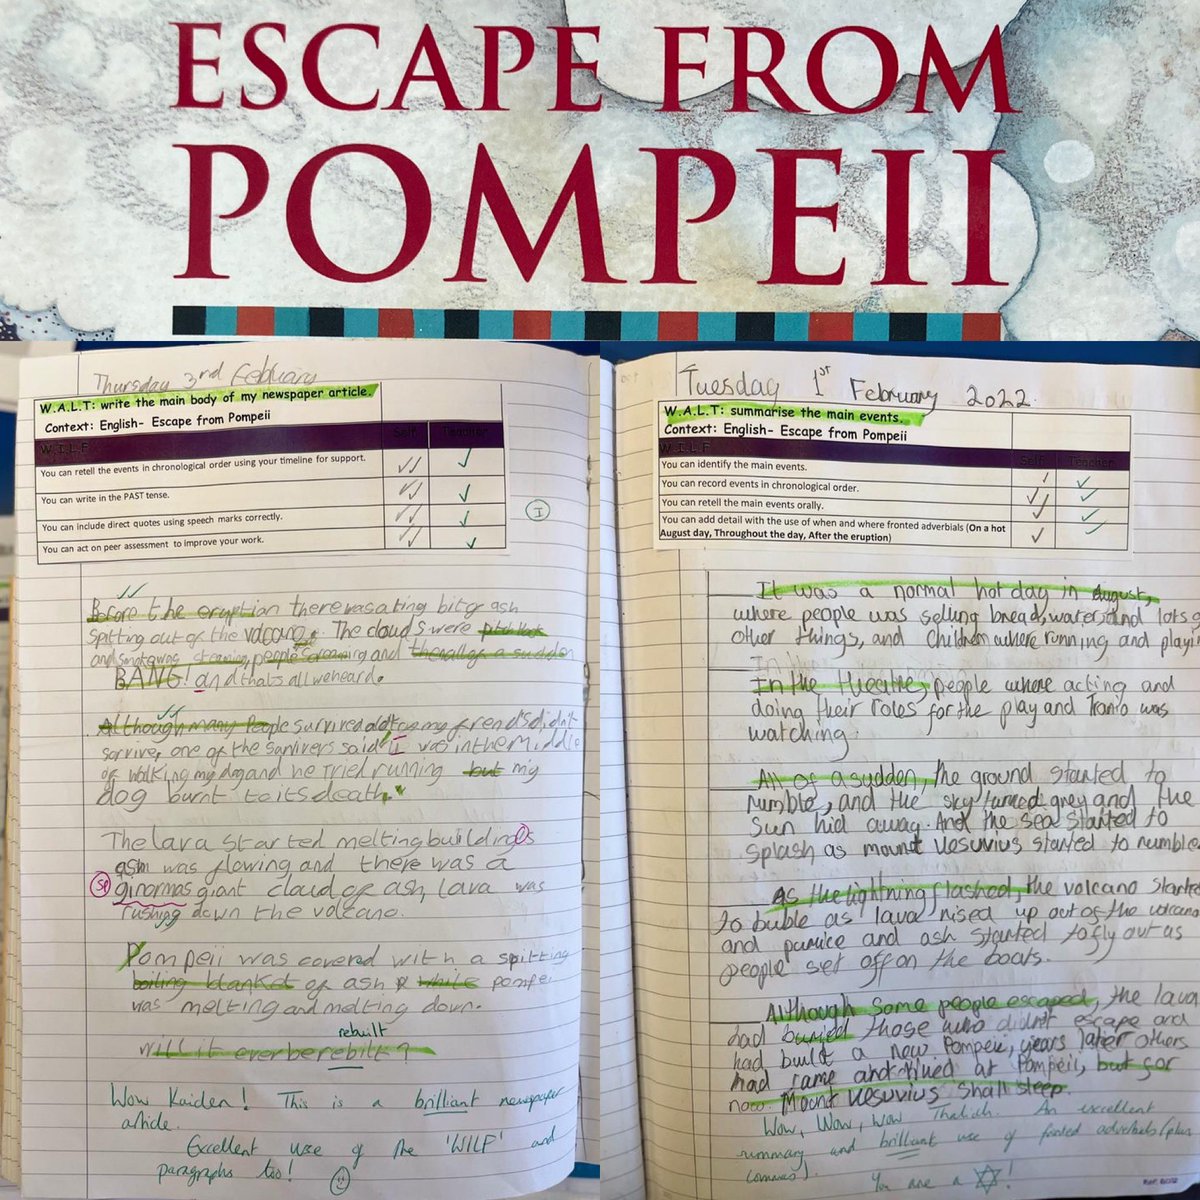 ESCAPE FROM
POMPEII
Thursday 3rd February
W.A.L.T: write the main body of my newspaper article.
Context: English- Escape from Pompeii
W.I.L.F
Self
Teacher
You can retell the events in chronological order using your timeline for support.
You can write in the PAST tense.
You can include direct quotes using speech marks correctly.
You can act on peer assessment to improve your work.
I
Before the eryption there was a ting bit of ash
spitting out of the volcano. The clouds were
and smoke was steaming, people screaming and then all of a sudden
BANG! and thats all we heard.
Although many People survived a lot of my frends didnt
sorrive, one of the sarlivers said I was in the Middle
of walking my dog and he Tried running but my
dog burnt to its death."
The lava started melting buildings
ash was flowing and there was a
sp
ginormas giant cloud of ash, lava was
rushing down the volcano.
Pompeii was covered with a spitting
boiling blanket of ash & while pompei
was melting and melting down.
rebuilt
will it ever be rebilt?
Wow Kaiden! This is a brilliant newspaper
article.
Excellent use of the 'WILF' and
paragraphs too!
Tuesday 1ST February 2022.
W.A.L.T: summarise the main events.
Context: English- Escape from Pompeii
W.I.L.F
Self
Teacher
You can identify the main events.
You can record events in chronological order.
You can retell the main events orally.
You can add detail with the use of when and where fronted adverbials (On a hot
August day, Throughout the day, After the eruption)
It was a normal hot day in August,
where people was selling bread, water, and lots o
other things, and children where running and playi
In
In the theatre, people where acting and
doing their roles for the play and Tranio was
watching.
All of a sudden, the ground started to
rumble, and the sky turned grey and the
sun hid away. And the sea started to
splash as mount vesuvius started to rumble
As the lightning flashed, the volcano starte
to buble as lava rised up out of the volcano
and pumice and ash started to fly out as
people set off on the boats.
Although some people escaped, the lava
had buried those who didn't escape and
had built a new Pompeii, years later others
had came and at Pompeii, but for
now Mount vesuvius shall sleep.
Wow, Wow, wow An excellent
summary and brilliant use of fronted adverbials (plus
commas).
You are a !